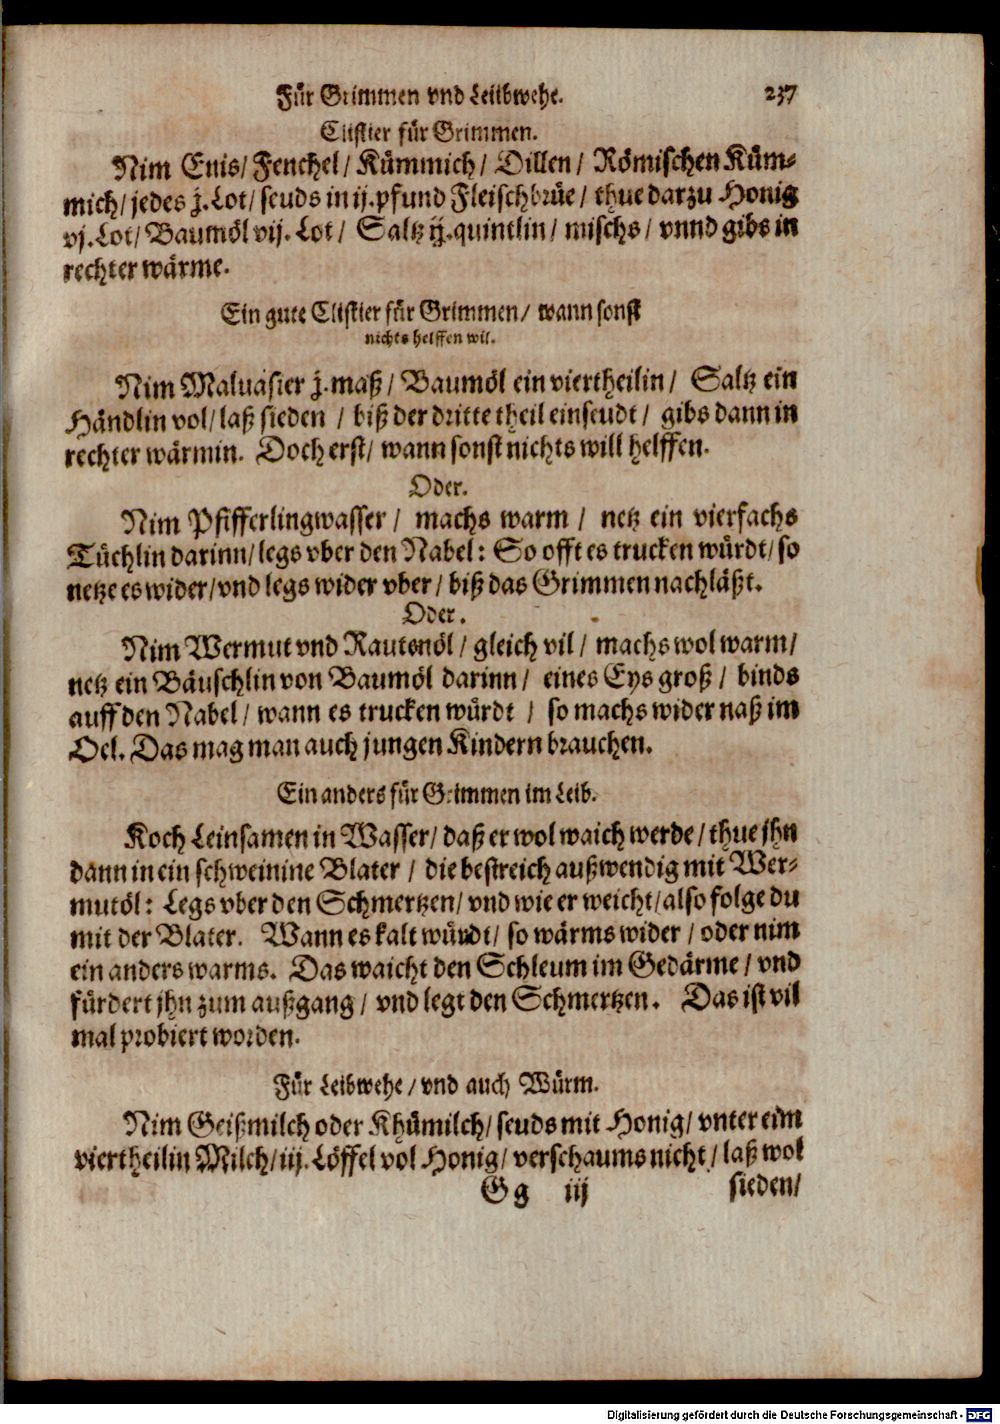 Für Grimmen vnd Leibwehe. 237
Clistier für Grimmen.
Nim Enis/ Fenchel/ Kümmich/ Dillen/ Römischen Küm-
mich/ jedes j. Lot/ seuds in ij. pfund Fleischbrüe/ thue darzu Honig
vj. Lot/ Baumöl vij. Lot/ Saltz ij. quintlin/ mischs/ vnnd gibs in
rechter wärme.
Ein gute Clistier für Grimmen/ wann sonst
nichts helffen wil.
Nim Maluasier j. maß/ Baumöl ein viertheilin/ Saltz ein
Händlin vol/ laß sieden / biß der dritte theil einseudt/ gibs dann in
rechter wärmin. Doch erst/ wann sonst nichts will helffen.
Oder.
Nim Pfifferlingwasser/ machs warm/ netz ein vierfachs
Tüchlin darinn/ legs vber den Nabel: So offt es trucken würdt/ so
netze es wider/ vnd legs wider vber/ biß das Grimmen nachläßt.
Oder.
Nim Wermut vnd Rautenöl/ gleich vil/ machs wol warm/
netz ein Bäuschlin von Baumöl darinn/ eines Eys groß/ binds
auff den Nabel/ wann es trucken würdt / so machs wider naß im
Oel. Das mag man auch jungen Kindern brauchen.
Ein anders für Grimmen im Leib.
Koch Leinsamen in Wasser/ daß er wol waich werde/ thue jhn
dann in ein schweinine Blater / die bestreich außwendig mit Wer-
mutöl: Legs vber den Schmertzen/ vnd wie er weicht/ also folge du
mit der Blater. Wann es kalt würdt/ so wärms wider / oder nim
ein anders warms. Das waicht den Schleum im Gedärme/ vnd
fürdert jhn zum außgang/ vnd legt den Schmertzen. Das ist vil
mal probiert worden.
Für Leibwehe/ vnd auch Würm.
Nim Geißmilch oder Khümilch/ seuds mit Honig/ vnter eim
viertheilin Milch/ iij. Löffel vol Honig/ verschaums nicht/ laß wol
Gg iij sieden/
Digitalisierung gefördert durch die Deutsche Forschungsgemeinschaft - DFG